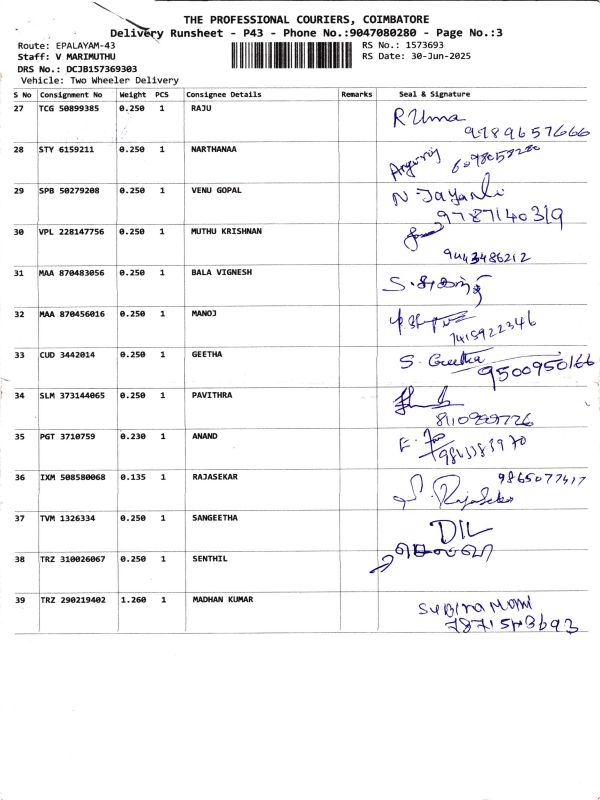 THE PROFESSIONAL COURIERS, COIMBATORE
Delivery Runsheet - P43 - Phone No.:9047080280 - Page No.:3
Route: EPALAYAM-43 RS No.: 1573693
Staff: V MARIMUTHU RS Date: 30-Jun-2025
DRS No.: DCJB157369303
Vehicle: Two Wheeler Delivery
S No Consignment No Weight PCS Consignee Details Remarks Seal & Signature
27 TCG 50899385 0.250 1 RAJU R Uma
9789657666
28 STY 6159211 0.250 1 NARTHANAA
29 SPB 50279208 0.250 1 VENU GOPAL N. Jayanthi
9787140319
30 VPL 228147756 0.250 1 MUTHU KRISHNAN
9443486212
31 MAA 870483056 0.250 1 BALA VIGNESH
32 MAA 870456016 0.250 1 MANOJ
7415922346
33 CUD 3442014 0.250 1 GEETHA S. Geetha
9500950166
34 SLM 373144065 0.250 1 PAVITHRA
35 PGT 3710759 0.230 1 ANAND
36 IXM 508580068 0.135 1 RAJASEKAR 9865077417
S. Rajasekar
37 TVM 1326334 0.250 1 SANGEETHA DIL
38 TRZ 310026067 0.250 1 SENTHIL
39 TRZ 290219402 1.260 1 MADHAN KUMAR SUBIRAMANI